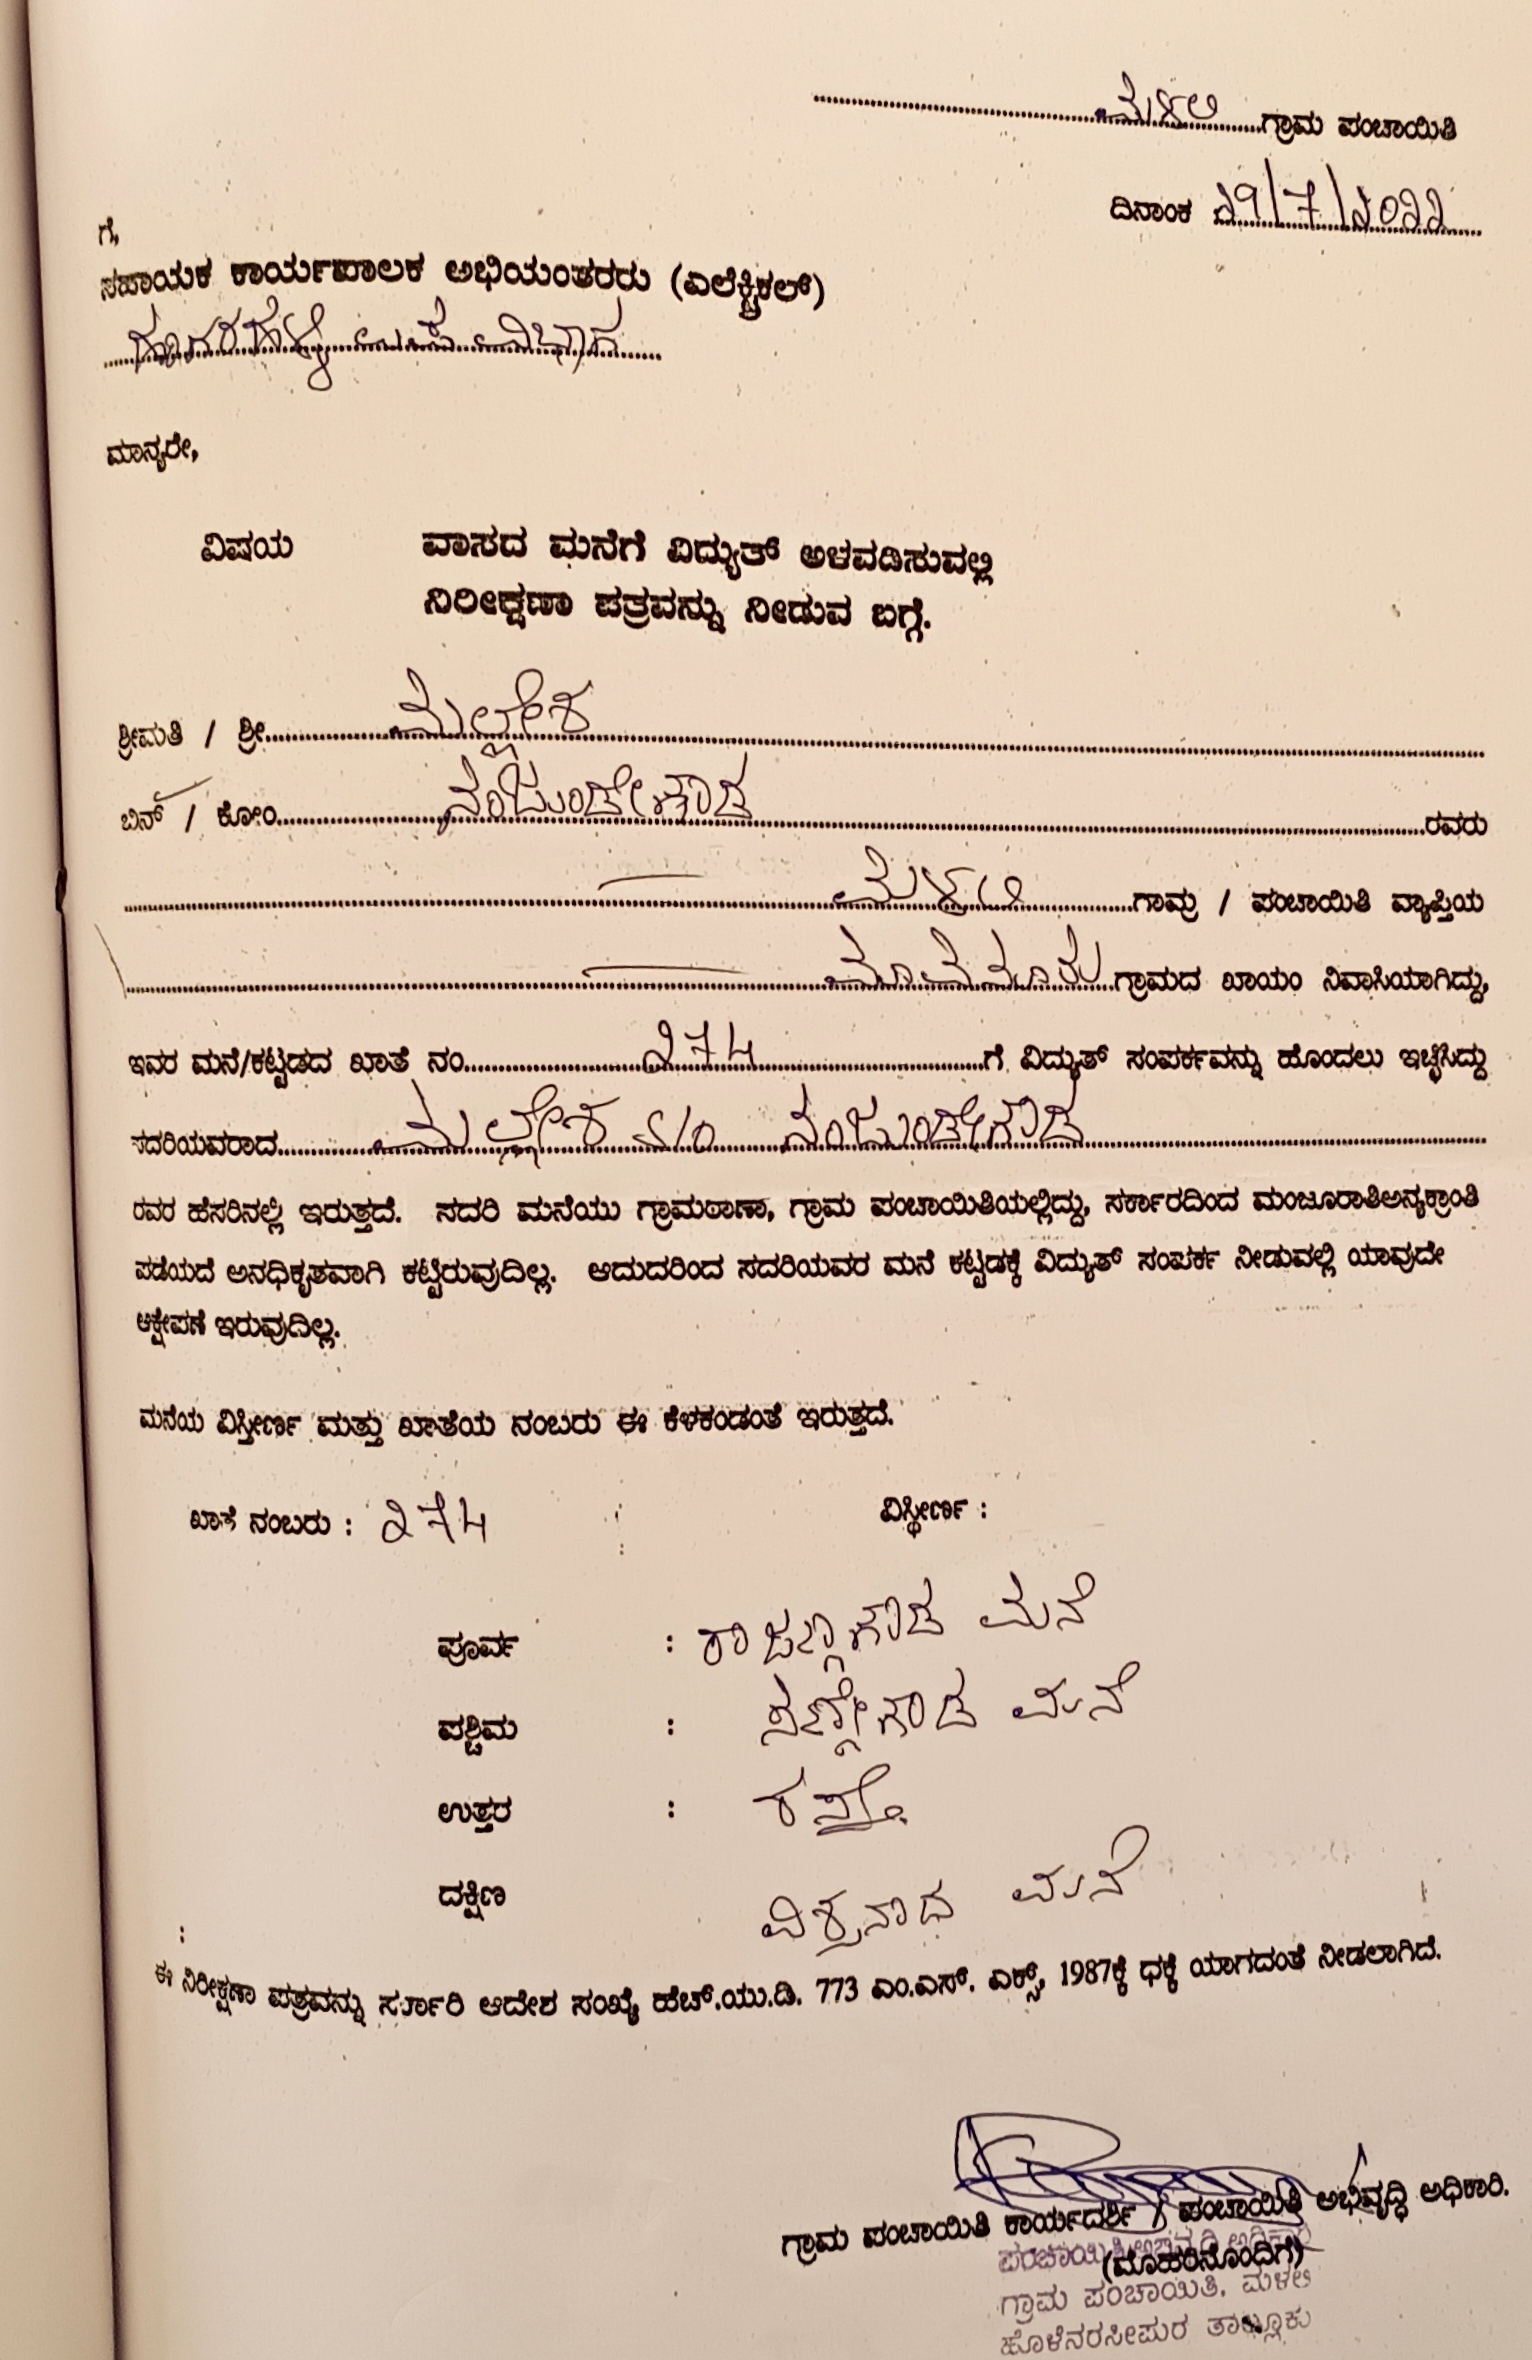 ಮಳಲಿ ಗ್ರಾಮ ಪಂಚಾಯಿತಿ
ದಿನಾಂಕ 29/7/2022
ಗೆ,
ಸಹಾಯಕ ಕಾರ್ಯಪಾಲಕ ಅಭಿಯಂತರರು (ಎಲೆಕ್ಟ್ರಿಕಲ್)
ಉಪ ವಿಭಾಗ
ಮಾನ್ಯರೇ,
ವಿಷಯ ವಾಸದ ಮನೆಗೆ ವಿದ್ಯುತ್ ಅಳವಡಿಸುವಲ್ಲಿ
ನಿರೀಕ್ಷಣಾ ಪತ್ರವನ್ನು ನೀಡುವ ಬಗ್ಗೆ.
ಶ್ರೀಮತಿ / ಶ್ರೀ ಮಲ್ಲೇಶ
ಬಿನ್ / ಕೋಂ ನಂಜುಂಡೇಗೌಡ ರವರು
ಮಳಲಿ ಗಾಮ್ರ / ಪಂಚಾಯಿತಿ ವ್ಯಾಪ್ತಿಯ
ಗ್ರಾಮದ ಖಾಯಂ ನಿವಾಸಿಯಾಗಿದ್ದು,
ಇವರ ಮನೆ/ಕಟ್ಟಡದ ಖಾತೆ ನಂ 274 ಗೆ ವಿದ್ಯುತ್ ಸಂಪರ್ಕವನ್ನು ಹೊಂದಲು ಇಚ್ಛಿಸಿದ್ದು
ಸದರಿಯವರಾದ ಮಲ್ಲೇಶ S/o ನಂಜುಂಡೇಗೌಡ
ರವರ ಹೆಸರಿನಲ್ಲಿ ಇರುತ್ತದೆ. ಸದರಿ ಮನೆಯು ಗ್ರಾಮಠಾಣಾ, ಗ್ರಾಮ ಪಂಚಾಯಿತಿಯಲ್ಲಿದ್ದು, ಸರ್ಕಾರದಿಂದ ಮಂಜೂರಾತಿಅನ್ಯಕ್ರಾಂತಿ
ಪಡೆಯದೆ ಅನಧಿಕೃತವಾಗಿ ಕಟ್ಟಿರುವುದಿಲ್ಲ. ಆದುದರಿಂದ ಸದರಿಯವರ ಮನೆ ಕಟ್ಟಡಕ್ಕೆ ವಿದ್ಯುತ್ ಸಂಪರ್ಕ ನೀಡುವಲ್ಲಿ ಯಾವುದೇ
ಆಕ್ಷೇಪಣೆ ಇರುವುದಿಲ್ಲ.
ಮನೆಯ ವಿಸ್ತೀರ್ಣ ಮತ್ತು ಖಾತೆಯ ನಂಬರು ಈ ಕೆಳಕಂಡಂತೆ ಇರುತ್ತದೆ.
ಖಾತೆ ನಂಬರು : 274 ವಿಸ್ಥೀರ್ಣ :
ಪೂರ್ವ : ರಾಜಣ್ಣಗೌಡ ಮನೆ
ಪಶ್ಚಿಮ : ಸಣ್ಣೇಗೌಡ ಮನೆ
ಉತ್ತರ : ರಸ್ತೆ
ದಕ್ಷಿಣ ವಿಶ್ವನಾಥ ಮನೆ
ಈ ನಿರೀಕ್ಷಣಾ ಪತ್ರವನ್ನು ಸರ್ಕಾರಿ ಆದೇಶ ಸಂಖ್ಯೆ ಹೆಚ್.ಯು.ಡಿ. 773 ಎಂ.ಎಸ್. ಎಕ್ಸ್, 1987ಕ್ಕೆ ಧಕ್ಕೆ ಯಾಗದಂತೆ ನೀಡಲಾಗಿದೆ.
ಗ್ರಾಮ ಪಂಚಾಯಿತಿ ಕಾರ್ಯದರ್ಶಿ / ಪಂಚಾಯಿತಿ ಅಭಿವೃದ್ಧಿ ಅಧಿಕಾರಿ.
(ಮೊಹರಿನೊಂದಿಗೆ)
ಪಂಚಾಯಿತಿ ಅಭಿವೃದ್ಧಿ ಅಧಿಕಾರಿ
ಗ್ರಾಮ ಪಂಚಾಯಿತಿ, ಮಳಲಿ
ಹೊಳೆನರಸೀಪುರ ತಾಲ್ಲೂಕು